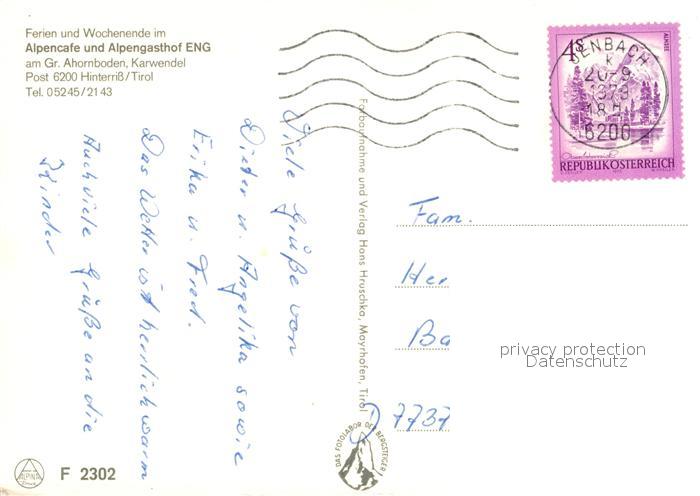 Ferien und Wochenende im
Alpencafe und Alpengasthof ENG
am Gr. Ahornboden, Karwendel
Post 6200 Hinterriß/Tirol
Tel. 05245/21 43
Viele Grüße von
Dieter u. Angelika sowie
Erika u. Fred.
Das Wetter ist herrlich warm
Auch viele Grüße an die
Kinder
Farbaufnahme und Verlag Hans Hruschka, Mayrhofen, Tirol
DAS FOTOLABOR DER BERGSTEIGER
ALPINA
F 2302
JENBACH
20.-9.
1979
18 H
6200
4S
ALMSEE
REPUBLIK ÖSTERREICH
Fam.
Her
Ba
D 7737
privacy protection
Datenschutz